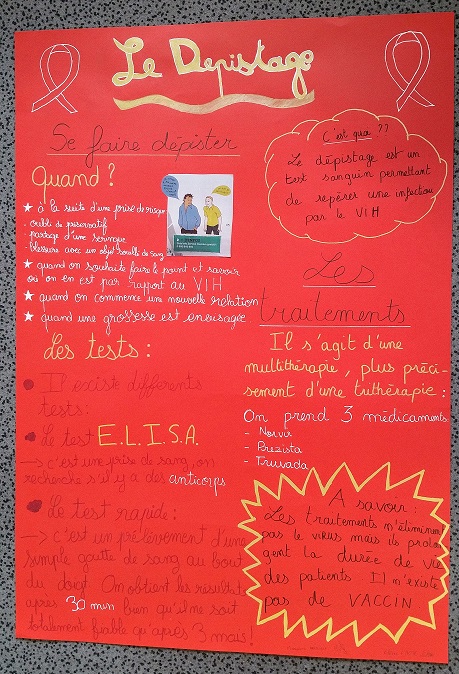 Le Depistage
Se faire dépister
Quand ?
★ à la suite d'une prise de risque
- oubli de preservatif
- partage d'une seringue
- blessure avec un objet souillé de sang
★ quand on souhaite faire le point et savoir
où l'on en est par rapport au VIH
★ quand on commence une nouvelle relation
★ quand une grossesse est envisagée
Les tests :
Il existe différents
tests :
Le test E.L.I.S.A.
→ c'est une prise de sang, on
recherche s'il y a des anticorps
Le test rapide :
→ c'est un prélèvement d'une
simple goutte de sang au bout
du doigt. On obtient les résultats
après 30 min bien qu'il ne soit
totalement fiable qu'après 3 mois !
C'est quoi ??
Le dépistage est un
test sanguin permettant
de repérer une infection
par le VIH
Les
traitements
Il s'agit d'une
multithérapie, plus préci-
sement d'une trithérapie :
On prend 3 médicaments
- Norvir
- Prezista
- Truvada
A savoir :
Les traitements n'éliminent
pas le virus mais ils prolon
gent la durée de vie
des patients Il n'existe
pas de VACCIN